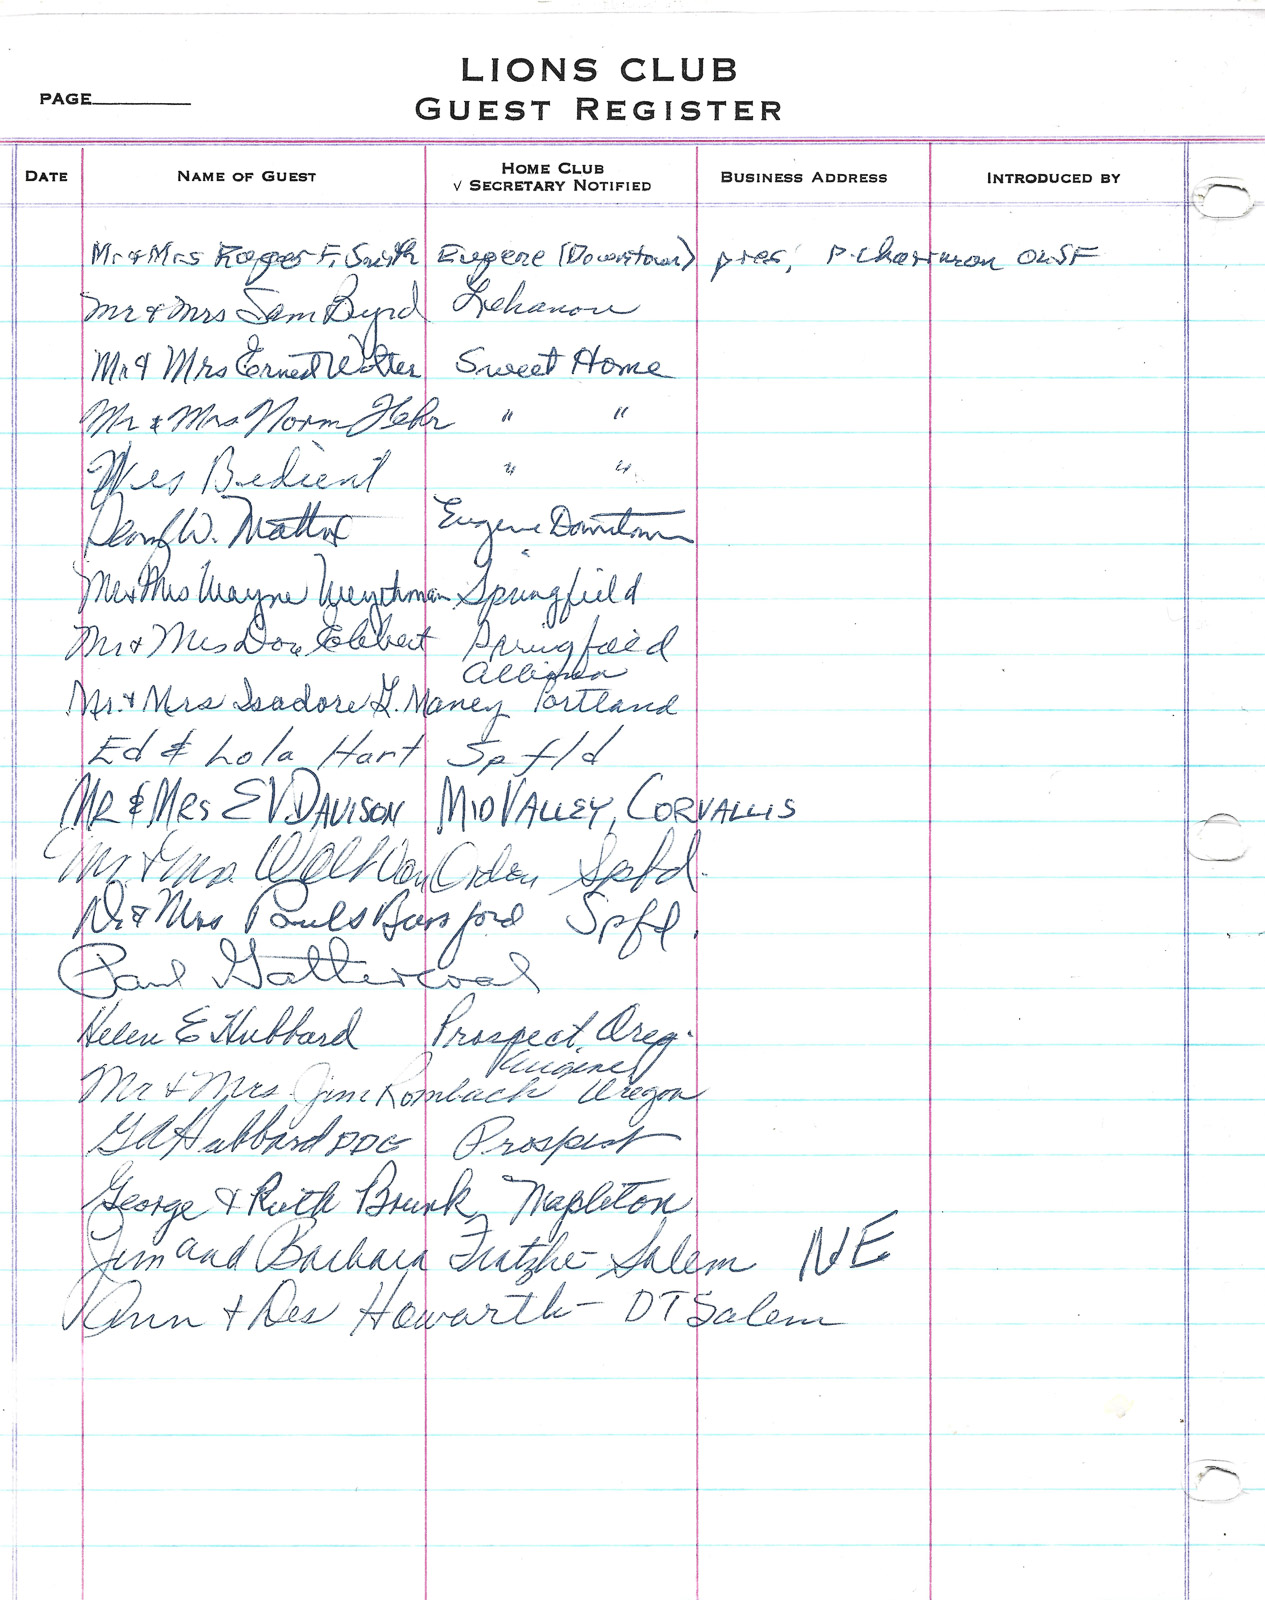 LIONS CLUB
PAGE
GUEST REGISTER
DATE NAME OF GUEST HOME CLUB √ SECRETARY NOTIFIED BUSINESS ADDRESS INTRODUCED BY
Mr & Mrs Roger F. Smith Eugene (Downtown) pres, P. Chairman OLSF
Mr & Mrs Sam Byrd Lebanon
Mr & Mrs Ernest Wolter Sweet Home
Mr & Mrs Norm Fehr " "
Wes Bedient " "
W. Mattox Eugene Downtown
Mr & Mrs Wayne Weythman Springfield
Mr & Mrs Don Springfield
Mr. & Mrs Isadore G. Maney Portland
Ed & Lola Hart Spfld
MR & MRS EV DAVISON MID VALLEY, CORVALLIS
Mr & Mrs. Walt Van Orden Spfd.
Mr & Mrs Paul S Bassford Spfd.
Paul Gathercoal
Helen E Hubbard Prospect, Oreg.
Eugene
Mr & Mrs. Jim Rombach Oregon
Hubbard PDG Prospect
George & Ruth Brunk Mapleton
Jim and Barbara Fratzke - Salem NE
Ann & Des Howarth - DT Salem